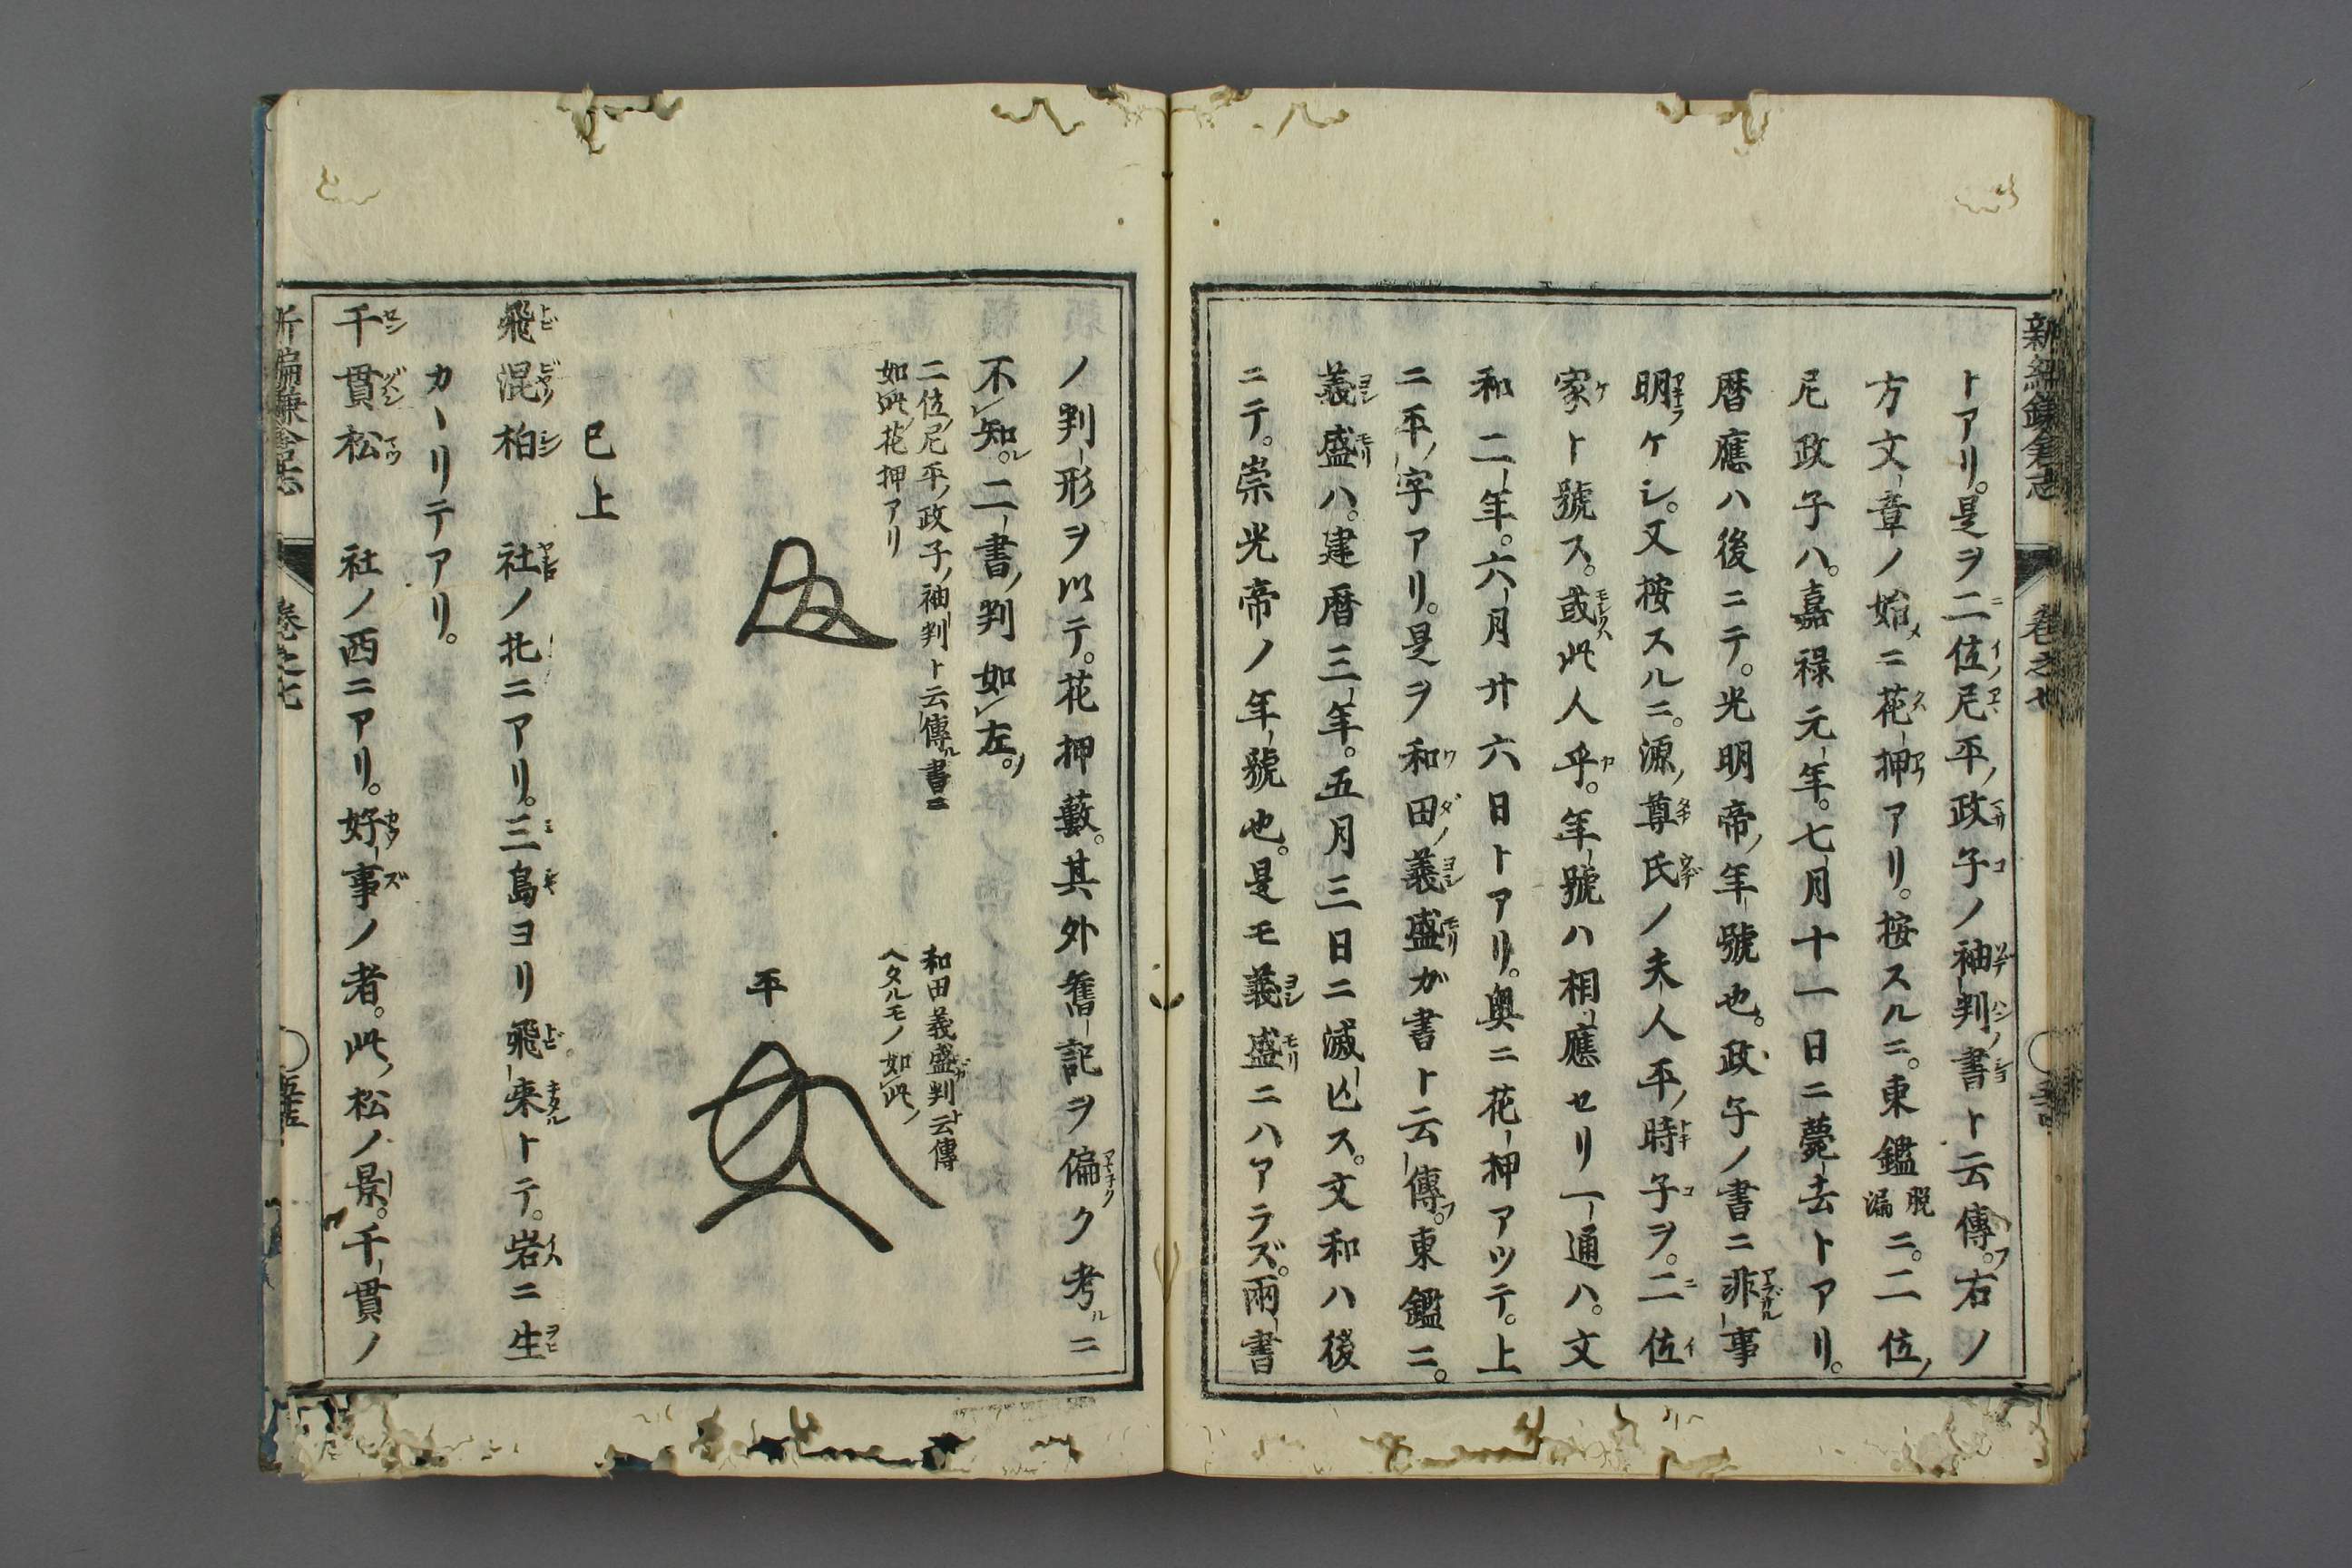 新編鎌倉志
巻之七
トアリ。是ヲ二位尼平ノ政子ノ袖判ノ書ト云傳フ。右ノ
方文章ノ始メニ花押アリ。按スルニ。東鑑脱漏ニ。二位ノ
尼政子ハ。嘉禄元年。七月十一日ニ薨去トアリ。
暦應ハ後ニテ。光明帝ノ年號也。政子ノ書ニ非事
明ケシ。又按スルニ。源ノ尊氏ノ夫人平ノ時子ヲ。二位
家ト號ス。或此人乎。年號ハ相應セリ一通ハ。文
和二年。六月廿六日トアリ。奥ニ花押アツテ。上
ニ平ノ字アリ。是ヲ和田ノ義盛ガ書ト云傳フ。東鑑ニ。
義盛ハ。建暦三年。五月三日ニ滅亡ス。文和ハ後
ニテ。崇光帝ノ年號也。是モ義盛ニハアラズ。兩書
ノ判形ヲ以テ。花押藪。其外舊記ヲ偏ク考ルニ
不知。二書ノ判如左。
二位ノ尼平ノ政子ノ袖判ト云傳ル書ニ
如此花押アリ
和田義盛判ト云傳
ヘタルモノ如此
平
已上
飛混柏 社ノ北ニアリ。三島ヨリ飛来トテ。岩ニ生
カヽリテアリ。
千貫松 社ノ西ニアリ。好事ノ者。此松ノ景。千貫ノ
新編鎌倉志
巻之七
五十五